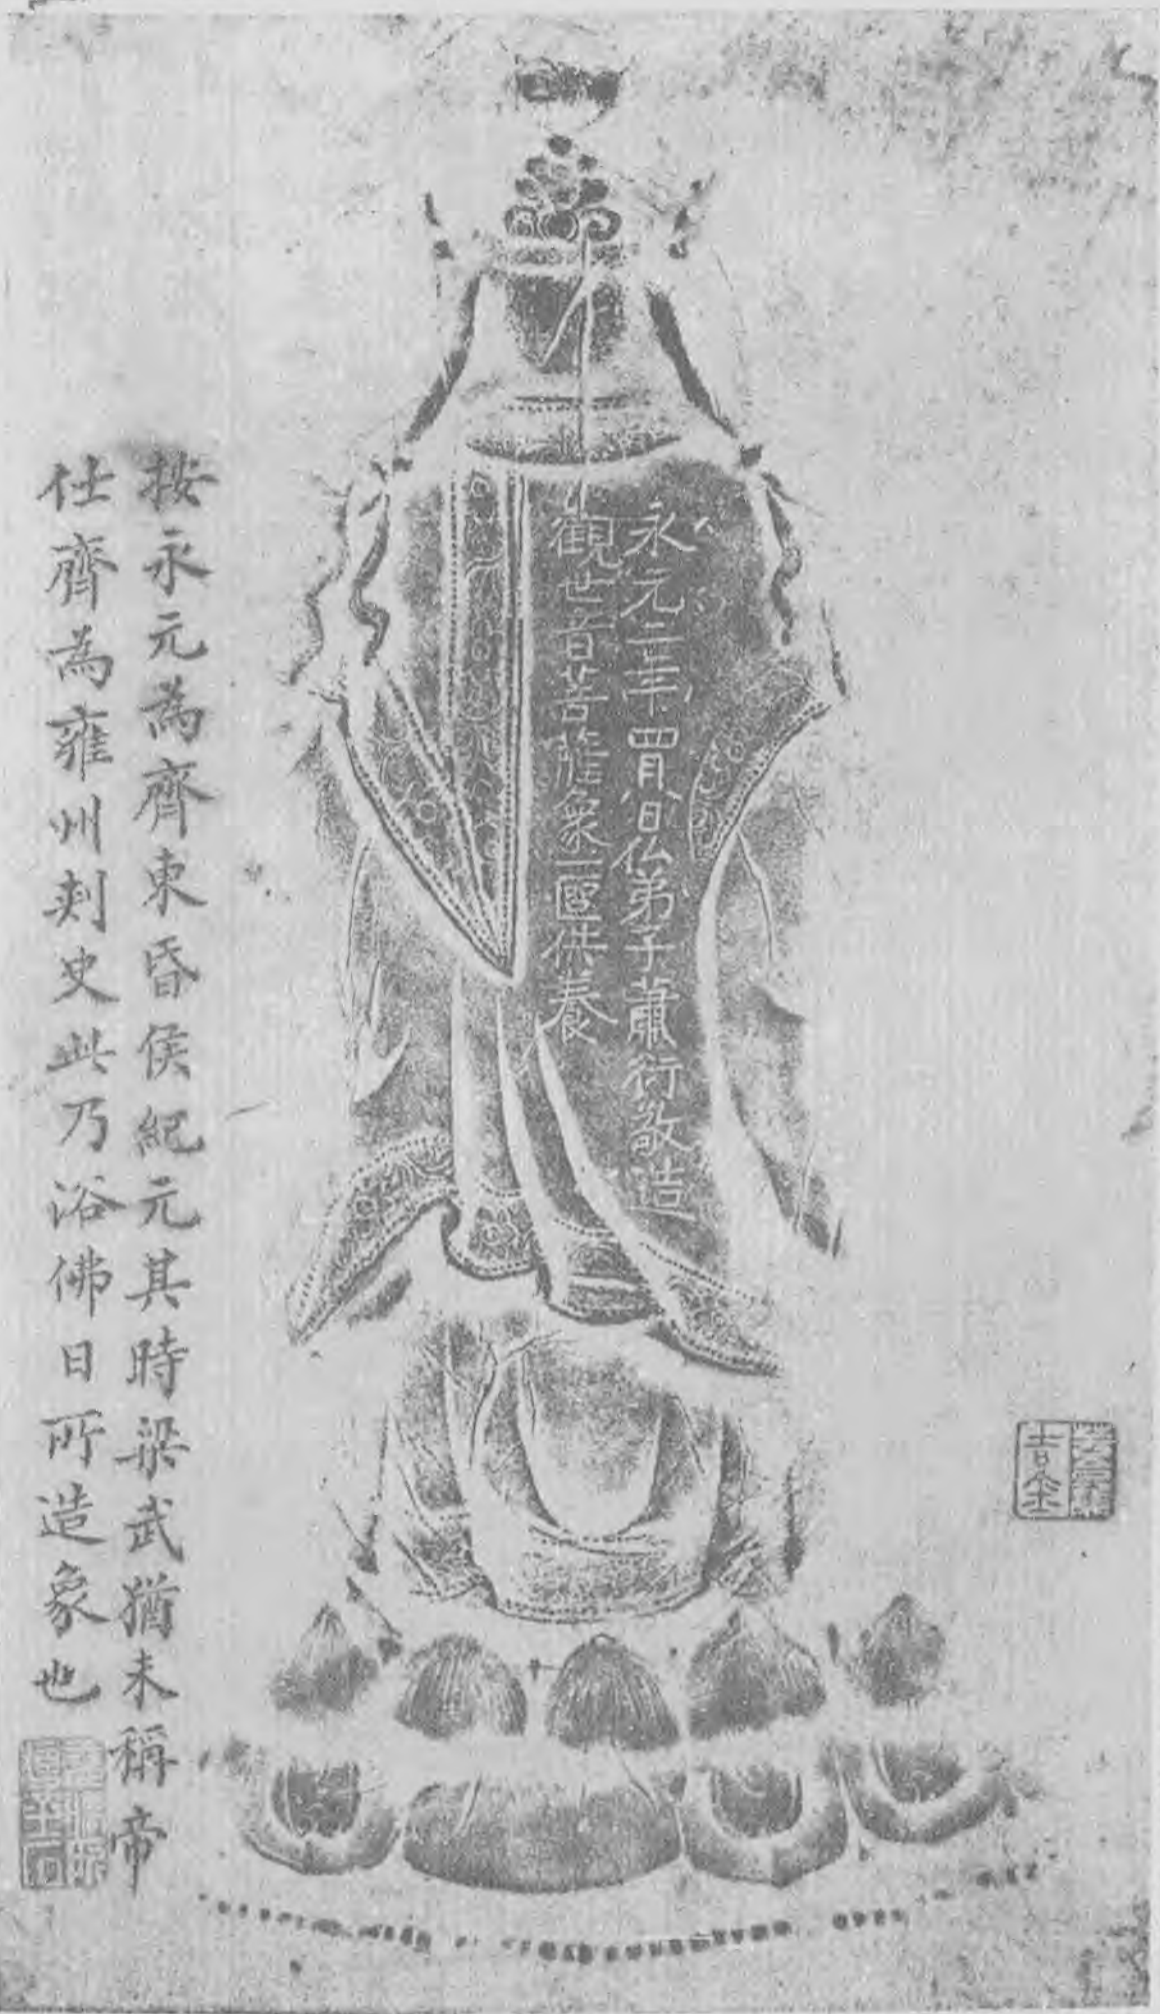 永元二年四月八日仏弟子蕭衍敬造
觀世音菩薩象一區供養
按永元為齊東昏侯紀元其時梁武猶未稱帝
仕齊為雍州刾史此乃浴佛日所造象也